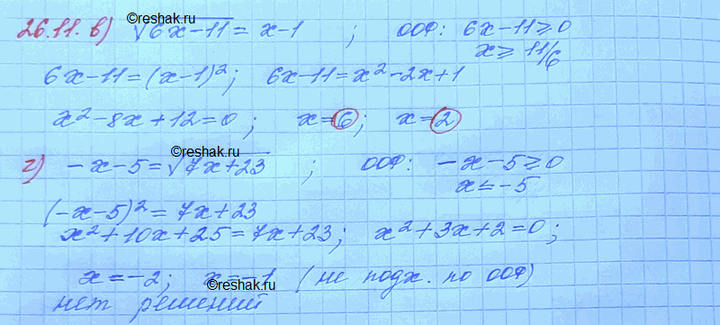 ©reshak.ru
26.11. в) √6x-11 = x-1 ; ООФ: 6x-11≥0
x≥ 11/6
6x-11=(x-1)²; 6x-11=x²-2x+1
x²-8x+12=0; x=6; x=2
©reshak.ru
г) -x-5=√7x+23 ; ООФ: -x-5≥0
x≤-5
(-x-5)²=7x+23
x²+10x+25=7x+23; x²+3x+2=0;
x=-2; x=-1 (не подх. по ООФ)
©reshak.ru
нет решений